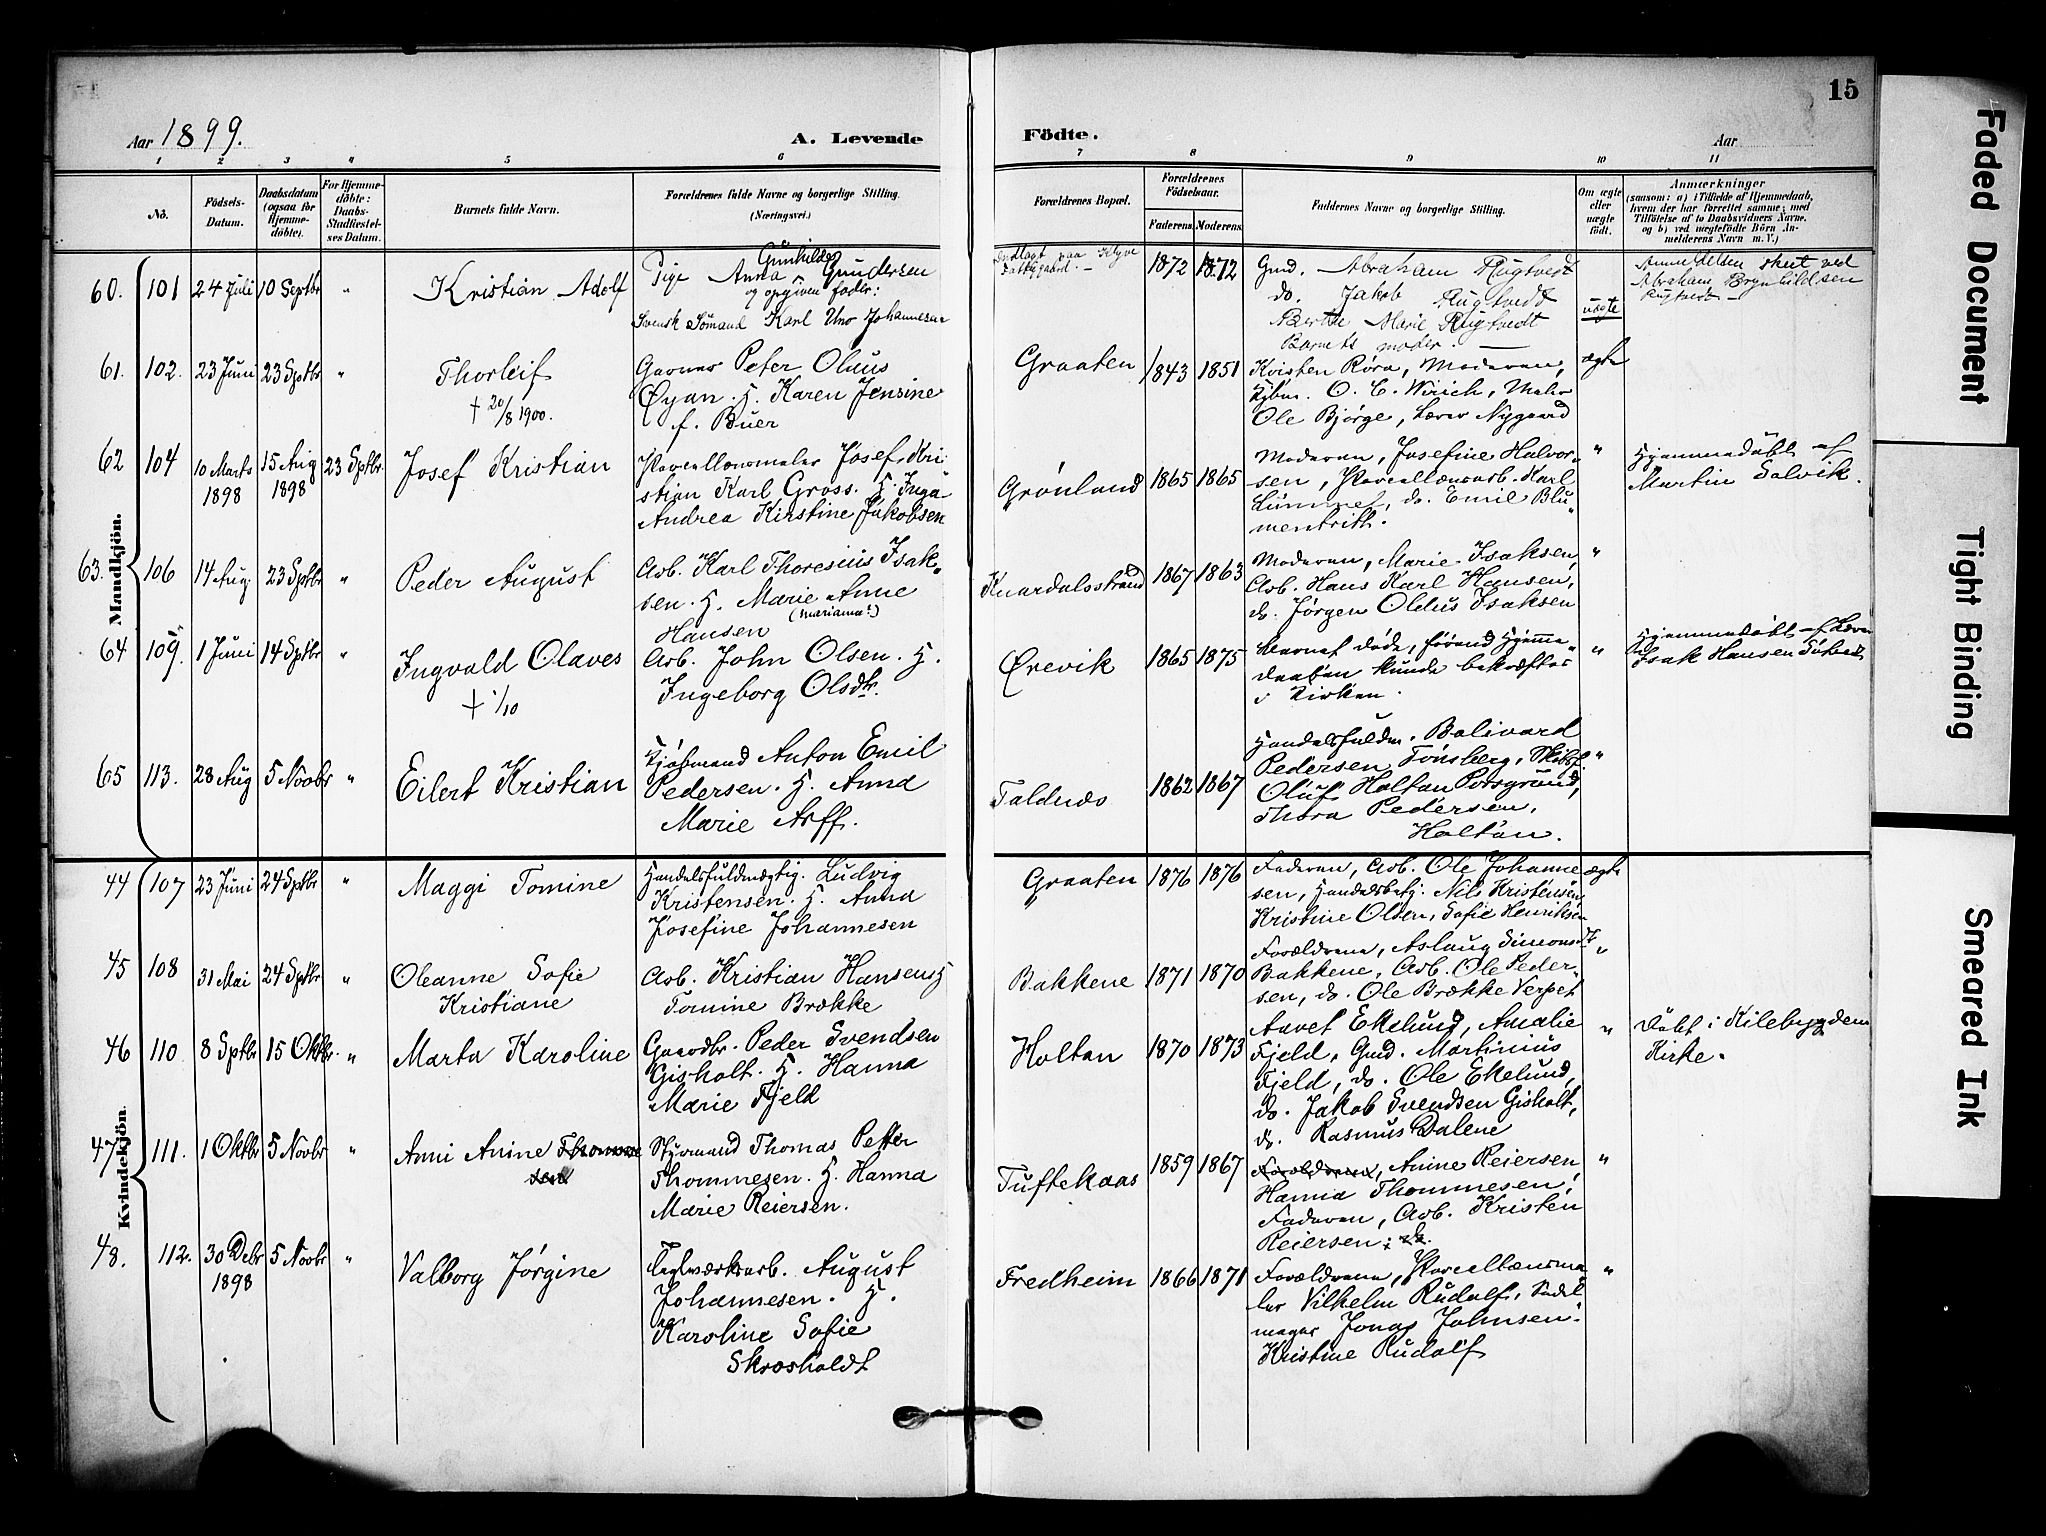 15
Aar 1899.
A. Levende
Födte.
Aar
1 2 3 4 5 6
7 8 9 10 11
No.
Födsels-
Datum.
Daabsdatum
(ogsaa for
Hjemme-
döbte).
For Hjemme-
döbte:
Daabs-
Stadfæstel-
ses Datum.
Barnets fulde Navn.
Forældrenes fulde Navne og borgerlige Stilling.
(Næringsvei.)
Forældrenes Bopæl.
Forældrenes
Födselsaar.
Faderens Moderens
Faddernes Navne og borgerlige Stilling.
Om ægte
eller
uægte
födt.
Anmærkninger
(saasom: a) i Tilfælde af Hjemmedaab,
hvem der har forrettet samme; med
Tilföielse af to Daabsvidners Navne.
og b) ved uægtefödte Börn An-
melderens Navn m. V.)
Mandkjön.
60. 101 24 Juli 10 Septbr " Kristian Adolf
Pige Anna Gunhilda Gundersen
og opgiven fader:
Svensk Sömand Karl Uno Johannesen
1872 1872
Gmd. Abraham Rugtvedt
do. Jakob Rugtvedt
Berthe Marie Rugtvedt
Barnets moder. —
uægte
Anmeldelsen skeet ved
Abraham Brynhildsen
Rugtvedt —
61. 102. 23 Juni 23 Sptbr " Thorleif
† 20/8 1900.
Garver Peter Olaus
Øyan. H. Karen Jensine
f. Buer
Graaten 1843 1851
Kristen Röra, Moderen,
Kjbm. O. C. Wirich, Maler
Ole Bjørge, Lærer Nygaard
ægte
62 104 10 Marts 1898 15 Aug 1898 23 Sptbr. Josef Kristian
Porcellænsmaler Josef Kri-
stian Karl Gross. H. Inga
Andrea Kirstine Jakobsen
Grønland 1865 1865
Moderen, Josefine Halvor-
sen, Porcellænsarb. Karl
Lümmet, do. Emil Blu-
mentritt.
"
Hjemmedöbt af
Martin Solvik.
63. 106 14 Aug. 23 Sptbr " Peder August
Arb. Karl Thoresius Isak-
sen. H. Marie Anne
(Mariana?)
Hansen
Knardalsstrand 1867 1863
Moderen, Marie Isaksen,
Arb. Hans Karl Hansen,
do. Jörgen Olaus Isaksen
"
64 109. 1 Juni 14 Sptbr " Ingvald Olaves
† 1/10
Arb. John Olsen. H.
Ingeborg Olsdtr.
Ørevik 1865 1875
Barnet döde, förend Hjemme-
daaben kunde bekræftes
i Kirken.
"
Hjemmedöbt af Lærer
Isak Hansen
65 113. 28 Aug 5 Novbr " Eilert Kristian
Kjöbmand Anton Emil
Pedersen. H. Anna
Marie Arff.
Taldnæs 1862 1867
Handelsfuldm. Bolivard
Pedersen Tönsberg, Skibsf.
Oluf Holtan Porsgrund,
Thora Pedersen,
Holtan.
"
Kvindekjön.
44 107 23 Juni 24 Sptbr " Maggi Tomine
Handelsfuldmægtig. Ludvig
Kristensen. H. Anna
Josefine Johannesen
Graaten 1876 1876
Faderen, Arb. Ole Johanne-
sen, Handelsbetj. Nils Kristensen
Kristine Olsen, Sofie Henriksen
ægte
45 108 31 Mai 24 Sptbr " Oleanne Sofie
Kristiane
Arb. Kristian Hansen H
Tomine Brække
Bakkene 1871 1870
Forældrene, Aslaug Simonsdt
Bakkene, Arb. Ole Peder-
sen, do. Ole Brække Verpet
"
46 110 8 Sptbr 15 Oktbr. " Marta Karoline
Gaardbr. Peder Svendsen
Gisholt. H. Hanna
Marie Fjeld
Holtan 1870 1873
Aavet Ekelund, Amalie
Fjeld, Gmd. Martinius
Fjeld, do. Ole Ekelund,
do. Jakob Svendsen Gisholt,
do. Rasmus Dalene
"
Döbt i Kilebygdens
Kirke.
47 111. 1 Oktbr 5 Novbr " Anni Anine Thomme
sen
Styrmand Thomas Petter
Thommesen. H. Hanna
Marie Reiersen.
Tuftekaas 1859 1867
Forældrene, Anine Reiersen
Hanna Thommesen,
Faderen, Arb. Kristen
Reiersen; do.
"
48. 112. 30 Debr 1898 5 Novbr " Valborg Jörgine
Teglværksarb. August
Johannesen. H.
Karoline Sofie
Skrosholdt
Fredheim 1866 1871
Forældrene, Porcellænsma-
ler Vilhelm Rudolf, Sadel-
mager Jonas Johnsen.
Kristine Rudolf
"
Faded Document
Tight Binding
Smeared Ink